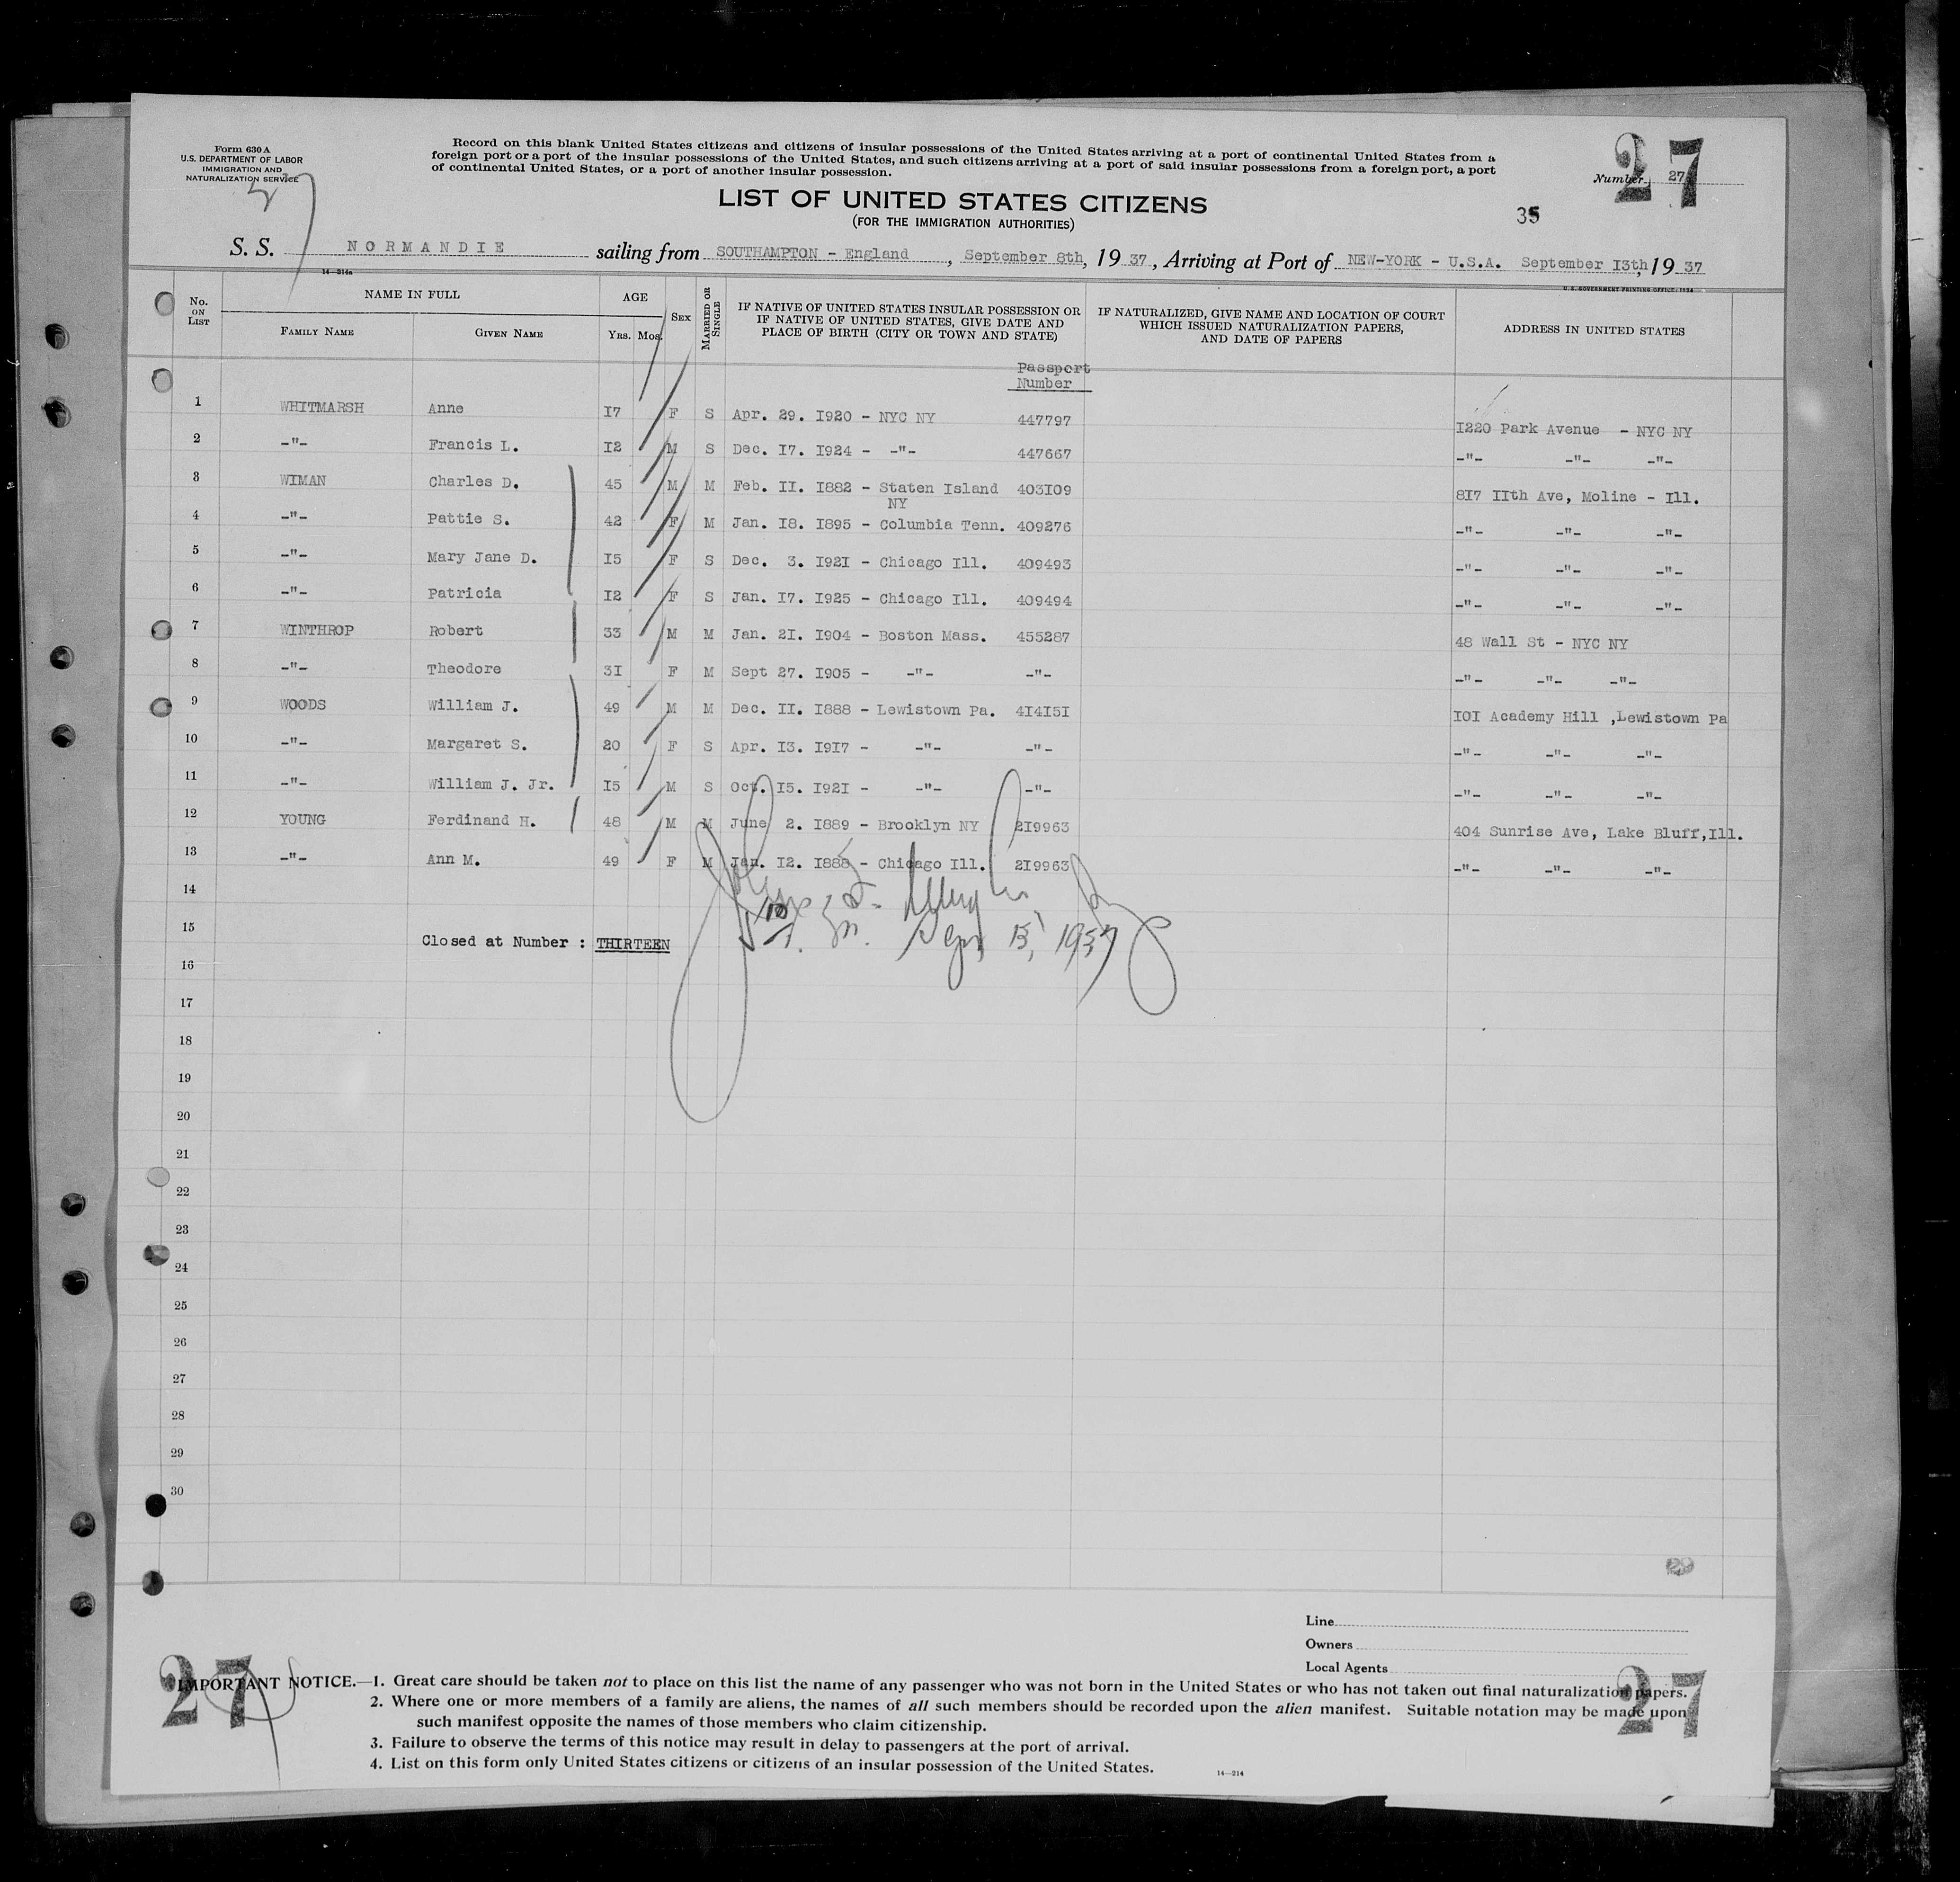 Form 630 A
U.S. DEPARTMENT OF LABOR
IMMIGRATION AND
NATURALIZATION SERVICE
Record on this blank United States citizens and citizens of insular possessions of the United States arriving at a port of continental United States from a
foreign port or a port of the insular possessions of the United States, and such citizens arriving at a port of said insular possessions from a foreign port, a port
of continental United States, or a port of another insular possession.
27
Number 27
LIST OF UNITED STATES CITIZENS
(FOR THE IMMIGRATION AUTHORITIES)
35
S. S. NORMANDIE sailing from SOUTHAMPTON - England, September 8th, 19 37, Arriving at Port of NEW-YORK - U.S.A. September I3th, 19 37
14—214a
U. S. GOVERNMENT PRINTING OFFICE: 1934
No. ON LIST
NAME IN FULL
FAMILY NAME GIVEN NAME
AGE
YRS. MOS.
SEX
MARRIED OR SINGLE
IF NATIVE OF UNITED STATES INSULAR POSSESSION OR
IF NATIVE OF UNITED STATES, GIVE DATE AND
PLACE OF BIRTH (CITY OR TOWN AND STATE)
IF NATURALIZED, GIVE NAME AND LOCATION OF COURT
WHICH ISSUED NATURALIZATION PAPERS,
AND DATE OF PAPERS
ADDRESS IN UNITED STATES
Passport
Number
1 WHITMARSH Anne I7 F S Apr. 29. I920 - NYC NY 447797 I220 Park Avenue - NYC NY
2 -"- Francis L. I2 M S Dec. I7. I924 - -"- 447667 -"- -"- -"-
3 WIMAN Charles D. 45 M M Feb. II. I882 - Staten Island NY 403I09 8I7 IIth Ave, Moline - Ill.
4 -"- Pattie S. 42 F M Jan. I8. I895 - Columbia Tenn. 409276 -"- -"- -"-
5 -"- Mary Jane D. I5 F S Dec. 3. I92I - Chicago Ill. 409493 -"- -"- -"-
6 -"- Patricia I2 F S Jan. I7. I925 - Chicago Ill. 409494 -"- -"- -"-
7 WINTHROP Robert 33 M M Jan. 2I. I904 - Boston Mass. 455287 48 Wall St - NYC NY
8 -"- Theodore 3I F M Sept 27. I905 - -"- -"- -"- -"- -"-
9 WOODS William J. 49 M M Dec. II. I888 - Lewistown Pa. 4I4I5I I0I Academy Hill ,Lewistown Pa
10 -"- Margaret S. 20 F S Apr. I3. I9I7 - -"- -"- -"- -"- -"-
11 -"- William J. Jr. I5 M S Oct. I5. I92I - -"- -"- -"- -"- -"-
12 YOUNG Ferdinand H. 48 M M June 2. I889 - Brooklyn NY 2I9963 404 Sunrise Ave, Lake Bluff,Ill.
13 -"- Ann M. 49 F M Jan. I2. I888 - Chicago Ill. 2I9963 -"- -"- -"-
14
15
Closed at Number : THIRTEEN
1937
16
17
18
19
20
21
22
23
24
25
26
27
28
29
30
Line
Owners
Local Agents
27
27
IMPORTANT NOTICE.—1. Great care should be taken not to place on this list the name of any passenger who was not born in the United States or who has not taken out final naturalization papers.
2. Where one or more members of a family are aliens, the names of all such members should be recorded upon the alien manifest. Suitable notation may be made upon
such manifest opposite the names of those members who claim citizenship.
3. Failure to observe the terms of this notice may result in delay to passengers at the port of arrival.
4. List on this form only United States citizens or citizens of an insular possession of the United States.
14—214